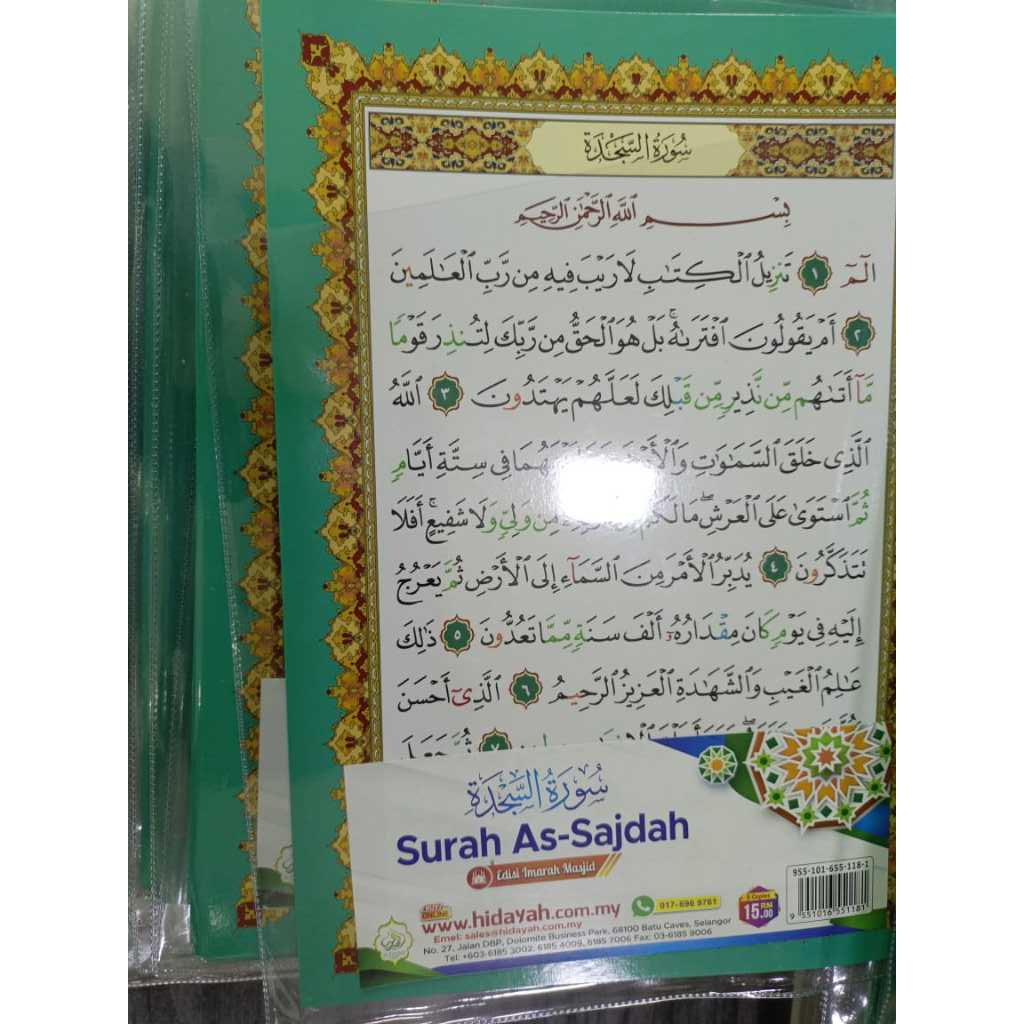 سُورَةُ السَّجْدَةِ
بِسْمِ ٱللَّهِ ٱلرَّحْمَٰنِ ٱلرَّحِيمِ
الٓمٓ ١ تَنزِيلُ ٱلْكِتَٰبِ لَا رَيْبَ فِيهِ مِن رَّبِّ ٱلْعَٰلَمِينَ
٢ أَمْ يَقُولُونَ ٱفْتَرَىٰهُ ۚ بَلْ هُوَ ٱلْحَقُّ مِن رَّبِّكَ لِتُنذِرَ قَوْمًا
مَّآ أَتَىٰهُم مِّن نَّذِيرٍ مِّن قَبْلِكَ لَعَلَّهُمْ يَهْتَدُونَ ٣ ٱللَّهُ
ٱلَّذِى خَلَقَ ٱلسَّمَٰوَٰتِ فِى سِتَّةِ أَيَّامٍ
ثُمَّ ٱسْتَوَىٰ عَلَى ٱلْعَرْشِ ۖ مَا لَكُم مِن وَلِىٍّ وَلَا شَفِيعٍ ۚ أَفَلَا
تَتَذَكَّرُونَ ٤ يُدَبِّرُ ٱلْأَمْرَ مِنَ ٱلسَّمَآءِ إِلَى ٱلْأَرْضِ ثُمَّ يَعْرُجُ
إِلَيْهِ فِى يَوْمٍ كَانَ مِقْدَارُهُۥٓ أَلْفَ سَنَةٍ مِّمَّا تَعُدُّونَ ٥ ذَٰلِكَ
عَٰلِمُ ٱلْغَيْبِ وَٱلشَّهَٰدَةِ ٱلْعَزِيزُ ٱلرَّحِيمُ ٦ ٱلَّذِىٓ أَحْسَنَ
٧ ثُمَّ جَعَلَ
سُورَةُ السَّجْدَةِ
Surah As-Sajdah
Edisi Imarah Masjid
BUY ONLINE
www.hidayah.com.my
017-696 9761
Emel: sales@hidayah.com.my
No. 27, Jalan DBP, Dolomite Business Park, 68100 Batu Caves, Selangor
Tel: +603-6185 3002, 6185 4009, 6185 7006 Fax: 03-6185 9006
5 Copies
RM
15.00
955-101-655-118-1
9 551016 551181